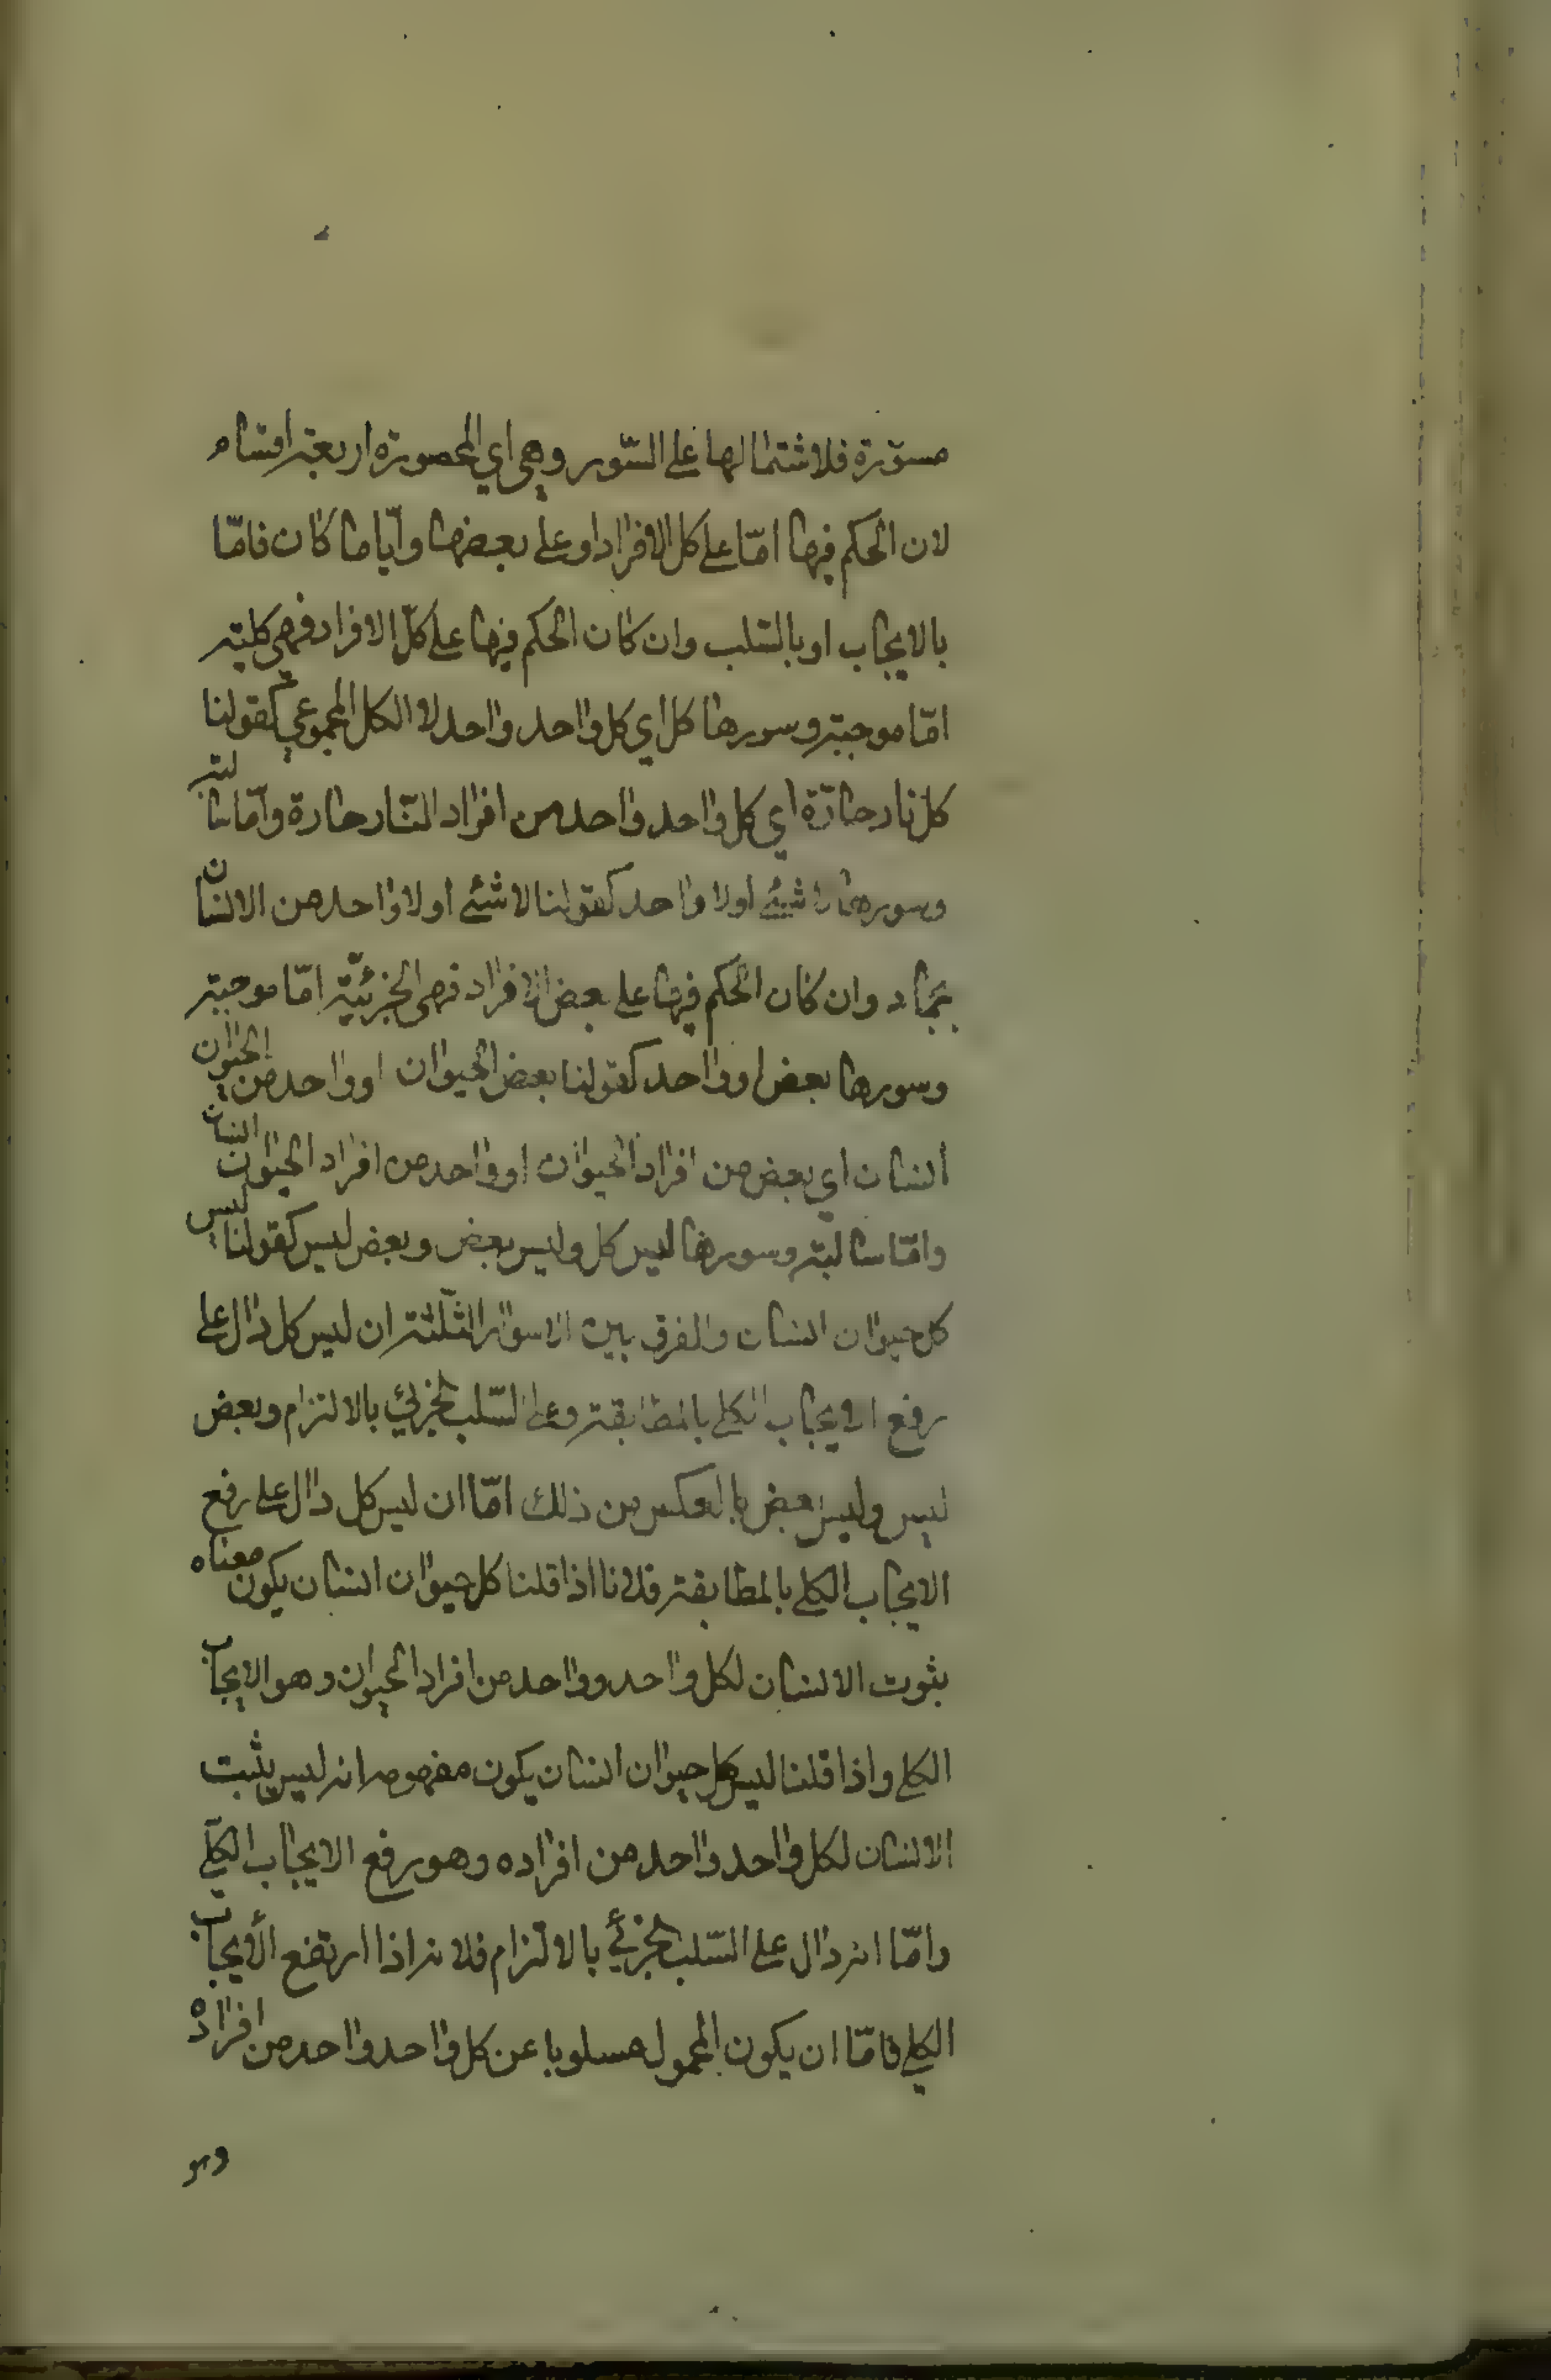 مسوّرة فلاشتمالها على السّور وهي اي المحصورة اربعة اقسام
لان الحكم فيها امّا على كل الافراد او على بعضها وأيّاما كان فامّا
بالايجاب او بالسّلب وان كان الحكم فيها على كلّ الافراد فهي كلية
امّا موجبة وسورها كل اي كل واحد واحد لا الكل المجموعي كقولنا
كل نار حارّة اي كل واحد واحد من افراد النّار حارة وأمّا سالبة
وسورها لا شئ او لا واحد كقولنا لا شئ او لا واحد من الانسان
بجماد وان كان الحكم فيها على بعض الافراد فهي الجزئيّة امّا موجبة
وسورها بعض او واحد كقولنا بعض الحيوان او واحد من الحيوان
انسان اي بعض من افراد الحيوان او واحد من افراد الحيوان انسان
وامّا سالبة وسورها ليس كل وليس بعض وبعض ليس كقولنا ليس
كل حيوان انسان والفرق بين الاسوار الثّلثة ان ليس كل دال على
رفع الايجاب الكلي بالمطابقة وعلى السّلب الجزئي بالالتزام وبعض
ليس وليس بعض بالعكس من ذلك امّا ان ليس كل دال على رفع
الايجاب الكلي بالمطابقة فلانا اذا قلنا كل حيوان انسان يكون معناه
بثوت الانسان لكل واحد وواحد من افراد الحيوان وهو الايجاب
الكلي واذا قلنا ليس كل حيوان انسان يكون مفهومه انه ليس يثبت
الانسان لكل واحد واحد من افراده وهو رفع الايجاب الكلّي
وامّا انه دال على السّلب الجزئي بالالتزام فلانه اذا ارتفع الأيجاب
الكلي فامّا ان يكون المحمول مسلوبا عن كل واحد واحد من افراده
وهو